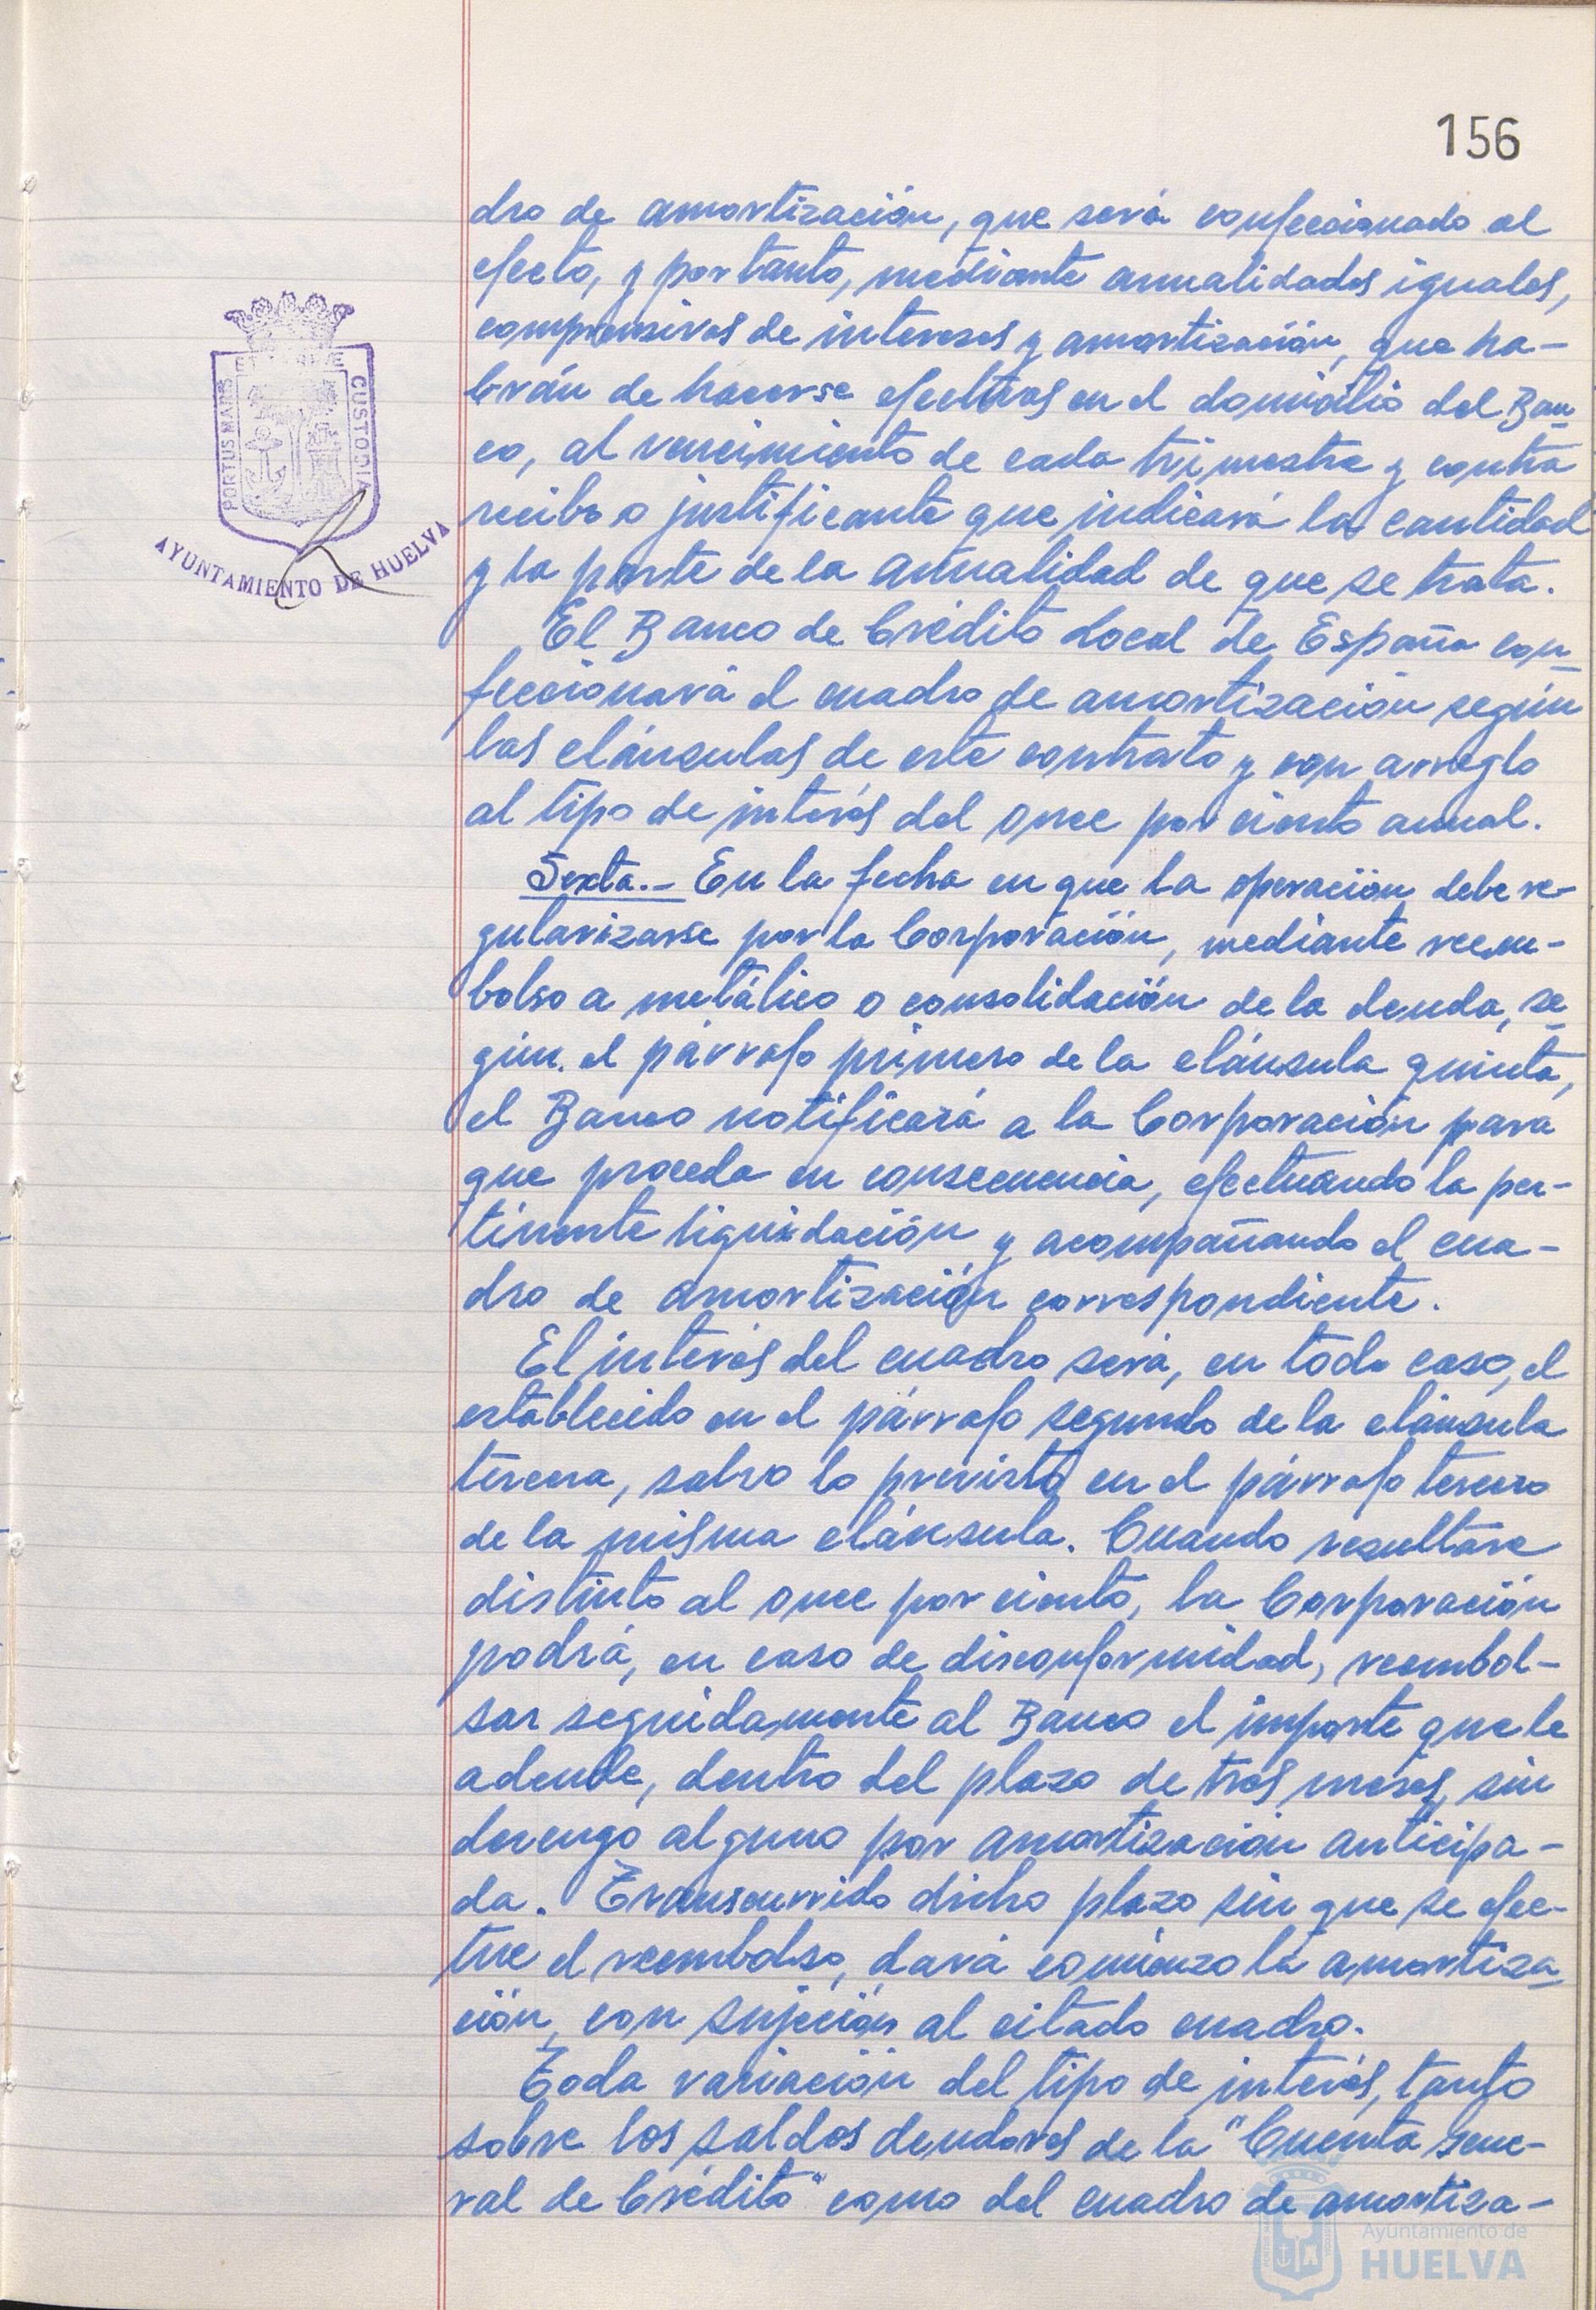 156
dro de amortización, que será confeccionado al
efecto, y por tanto, mediante anualidades iguales,
comprensivas de intereses y amortización, que ha-
brán de hacerse efectivas en el domicilio del Ban-
co, al vencimiento de cada trimestre y contra
recibo o justificante que indicará la cantidad
y la parte de la anualidad de que se trata.
El Banco de Crédito Local de España con-
feccionará el cuadro de amortización según
las cláusulas de este contrato y con arreglo
al tipo de interés del once por ciento anual.
Sexta.- En la fecha en que la operación debe re-
gularizarse por la Corporación, mediante reem-
bolso a metálico o consolidación de la deuda, se-
gún el párrafo primero de la cláusula quinta,
el Banco notificará a la Corporación para
que proceda en consecuencia, efectuando la per-
tinente liquidación y acompañando el cua-
dro de amortización correspondiente.
El interés del cuadro será, en todo caso, el
establecido en el párrafo segundo de la cláusula
tercera, salvo lo previsto en el párrafo tercero
de la misma cláusula. Cuando resultare
distinto al once por ciento, la Corporación
podrá, en caso de disconformidad, reembol-
sar seguidamente al Banco el importe que le
adeude, dentro del plazo de tres meses, sin
devengo alguno por amortización anticipa-
da. Transcurrido dicho plazo sin que se efec-
tue el reembolso, dará comienzo la amortiza-
ción, con sujeción al citado cuadro.
Toda variación del tipo de interés, tanto
sobre los saldos deudores de la "Cuenta gene-
ral de Crédito" como del cuadro de amortiza-
PORTUS MARIS
CUSTODIA
AYUNTAMIENTO DE HUELVA
Ayuntamiento de
HUELVA